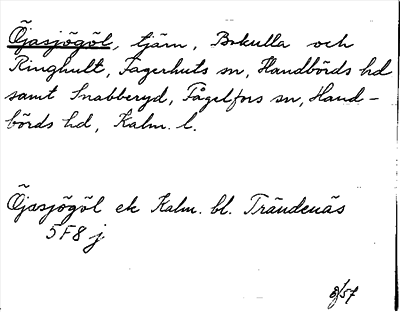 Öjasjögöl, tjärn, Bokulla och
Ringhult, Fagerhults sn, Handbörds hd
samt Snabberyd, Fågelfors sn, Hand-
börds hd, Kalm. l.
Öjasjögöl ek Kalm. bl. Trändenäs
5F8j
8/57